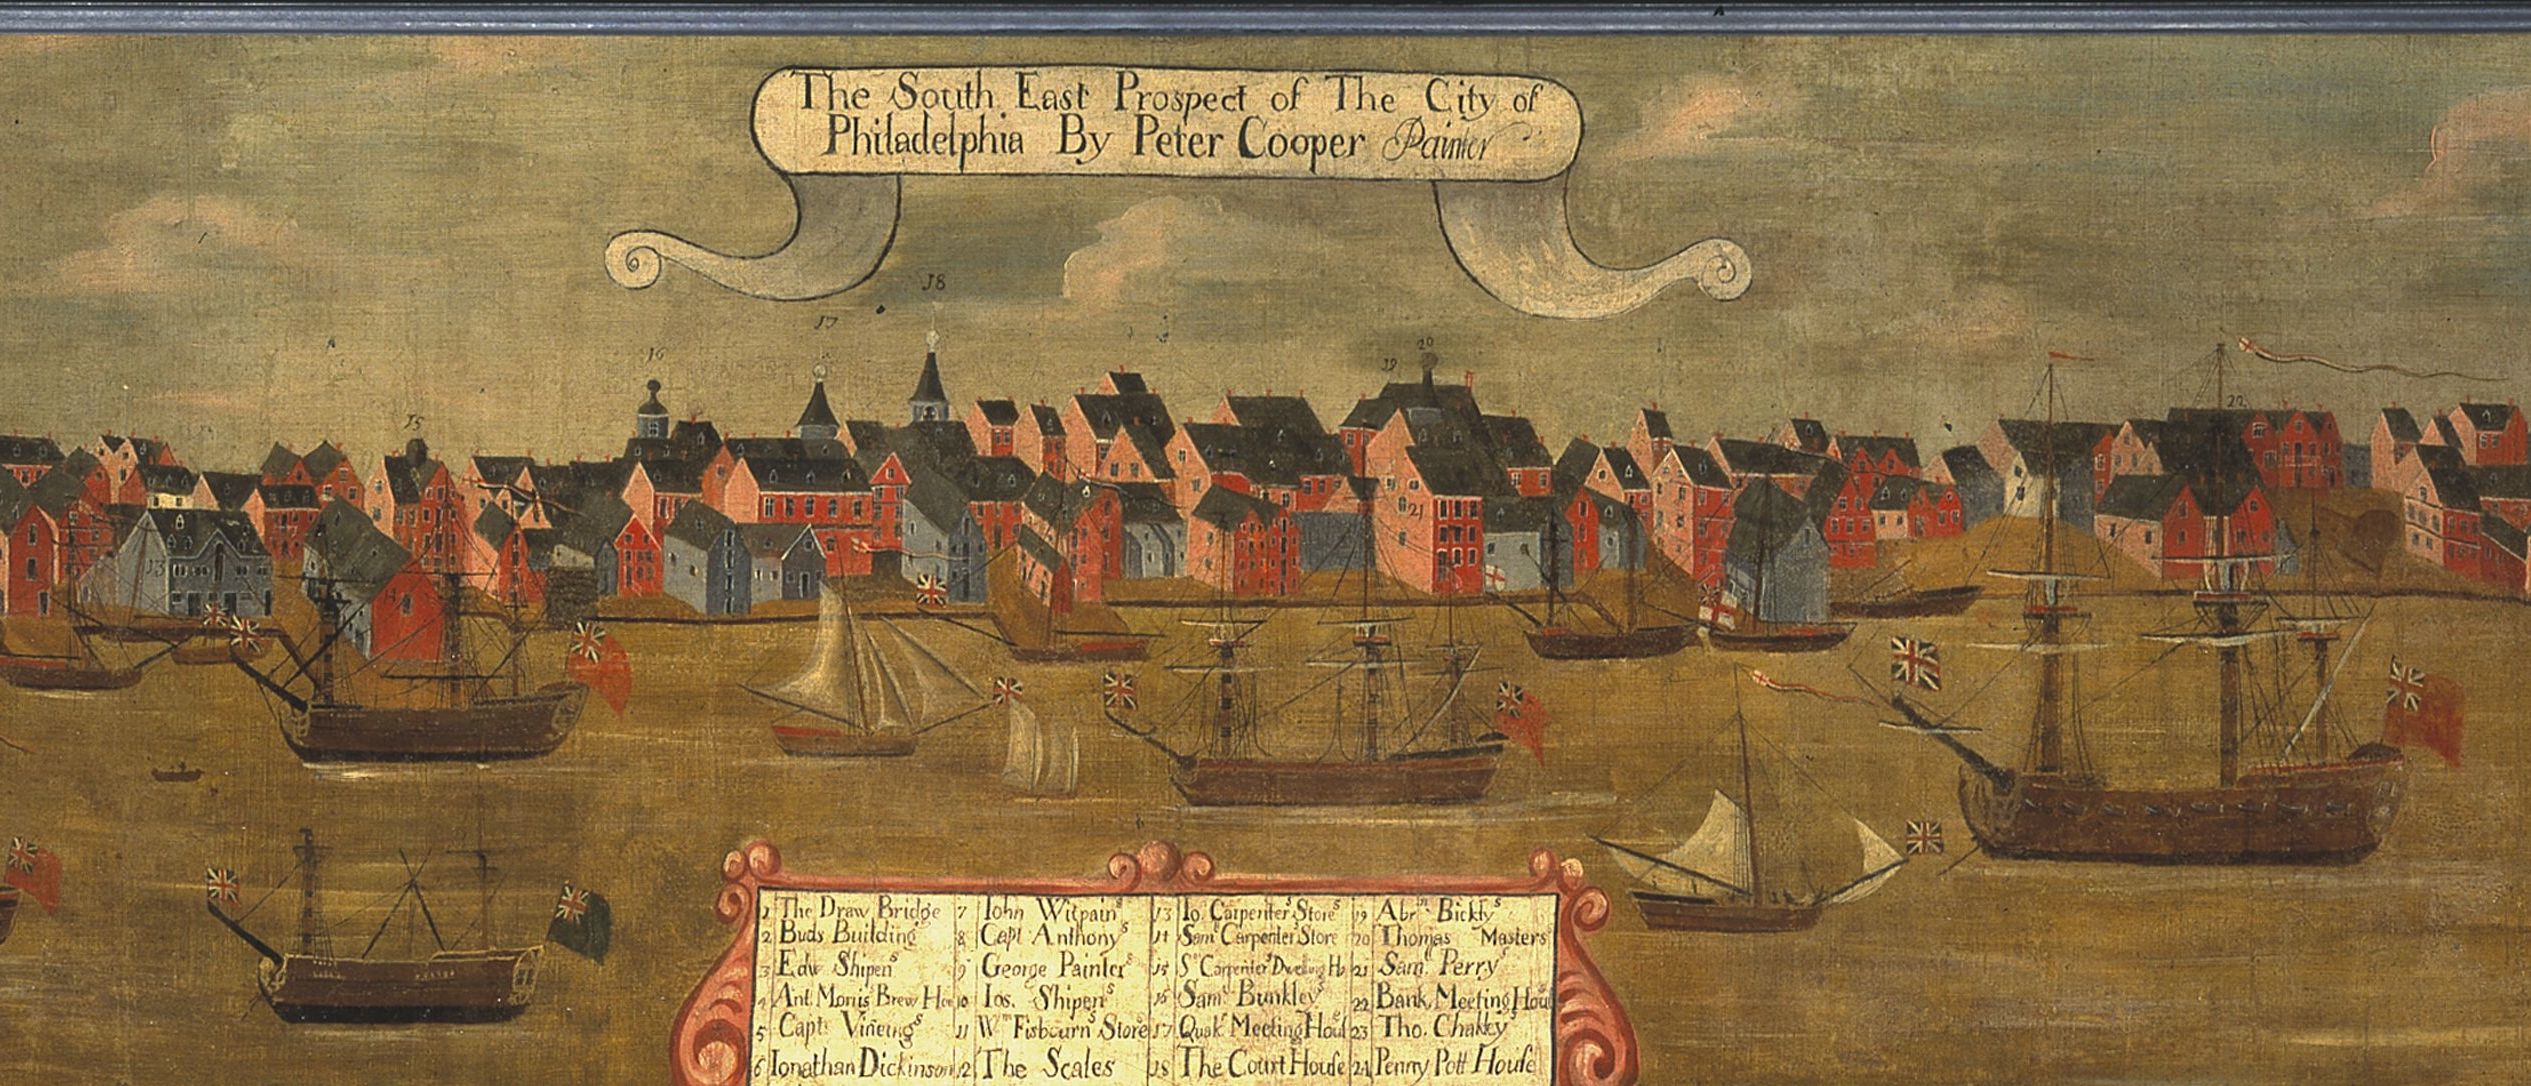 The South East Prospect of The City of
Philadelphia By Peter Cooper Painter
18
17
16
20
19
15
22
21
13
14
1 The Draw Bridge 7 Iohn Witpain's 13 Io. Carpenter's Store 19 Abrm Bickly's
2 Buds Building 8 Capt Anthony's 14 Saml Carpenter's Store 20 Thomas Masters
3 Edw Shipen's 9 George Painter's 15 Sl Carpenter's Dwelling Ho 21 Saml Perry's
4 Ant. Morris' Brew Hou 10 Ios. Shipen's 16 Saml Bunkley's 22 Bank Meeting Hous
5 Capt. Vineing's 11 Wm Fisbourn's Store 17 Quakr Meeting Hous 23 Tho. Chakky's
6 Ionathan Dickinson 12 The Scales 18 The Court House 24 Penny Pott House